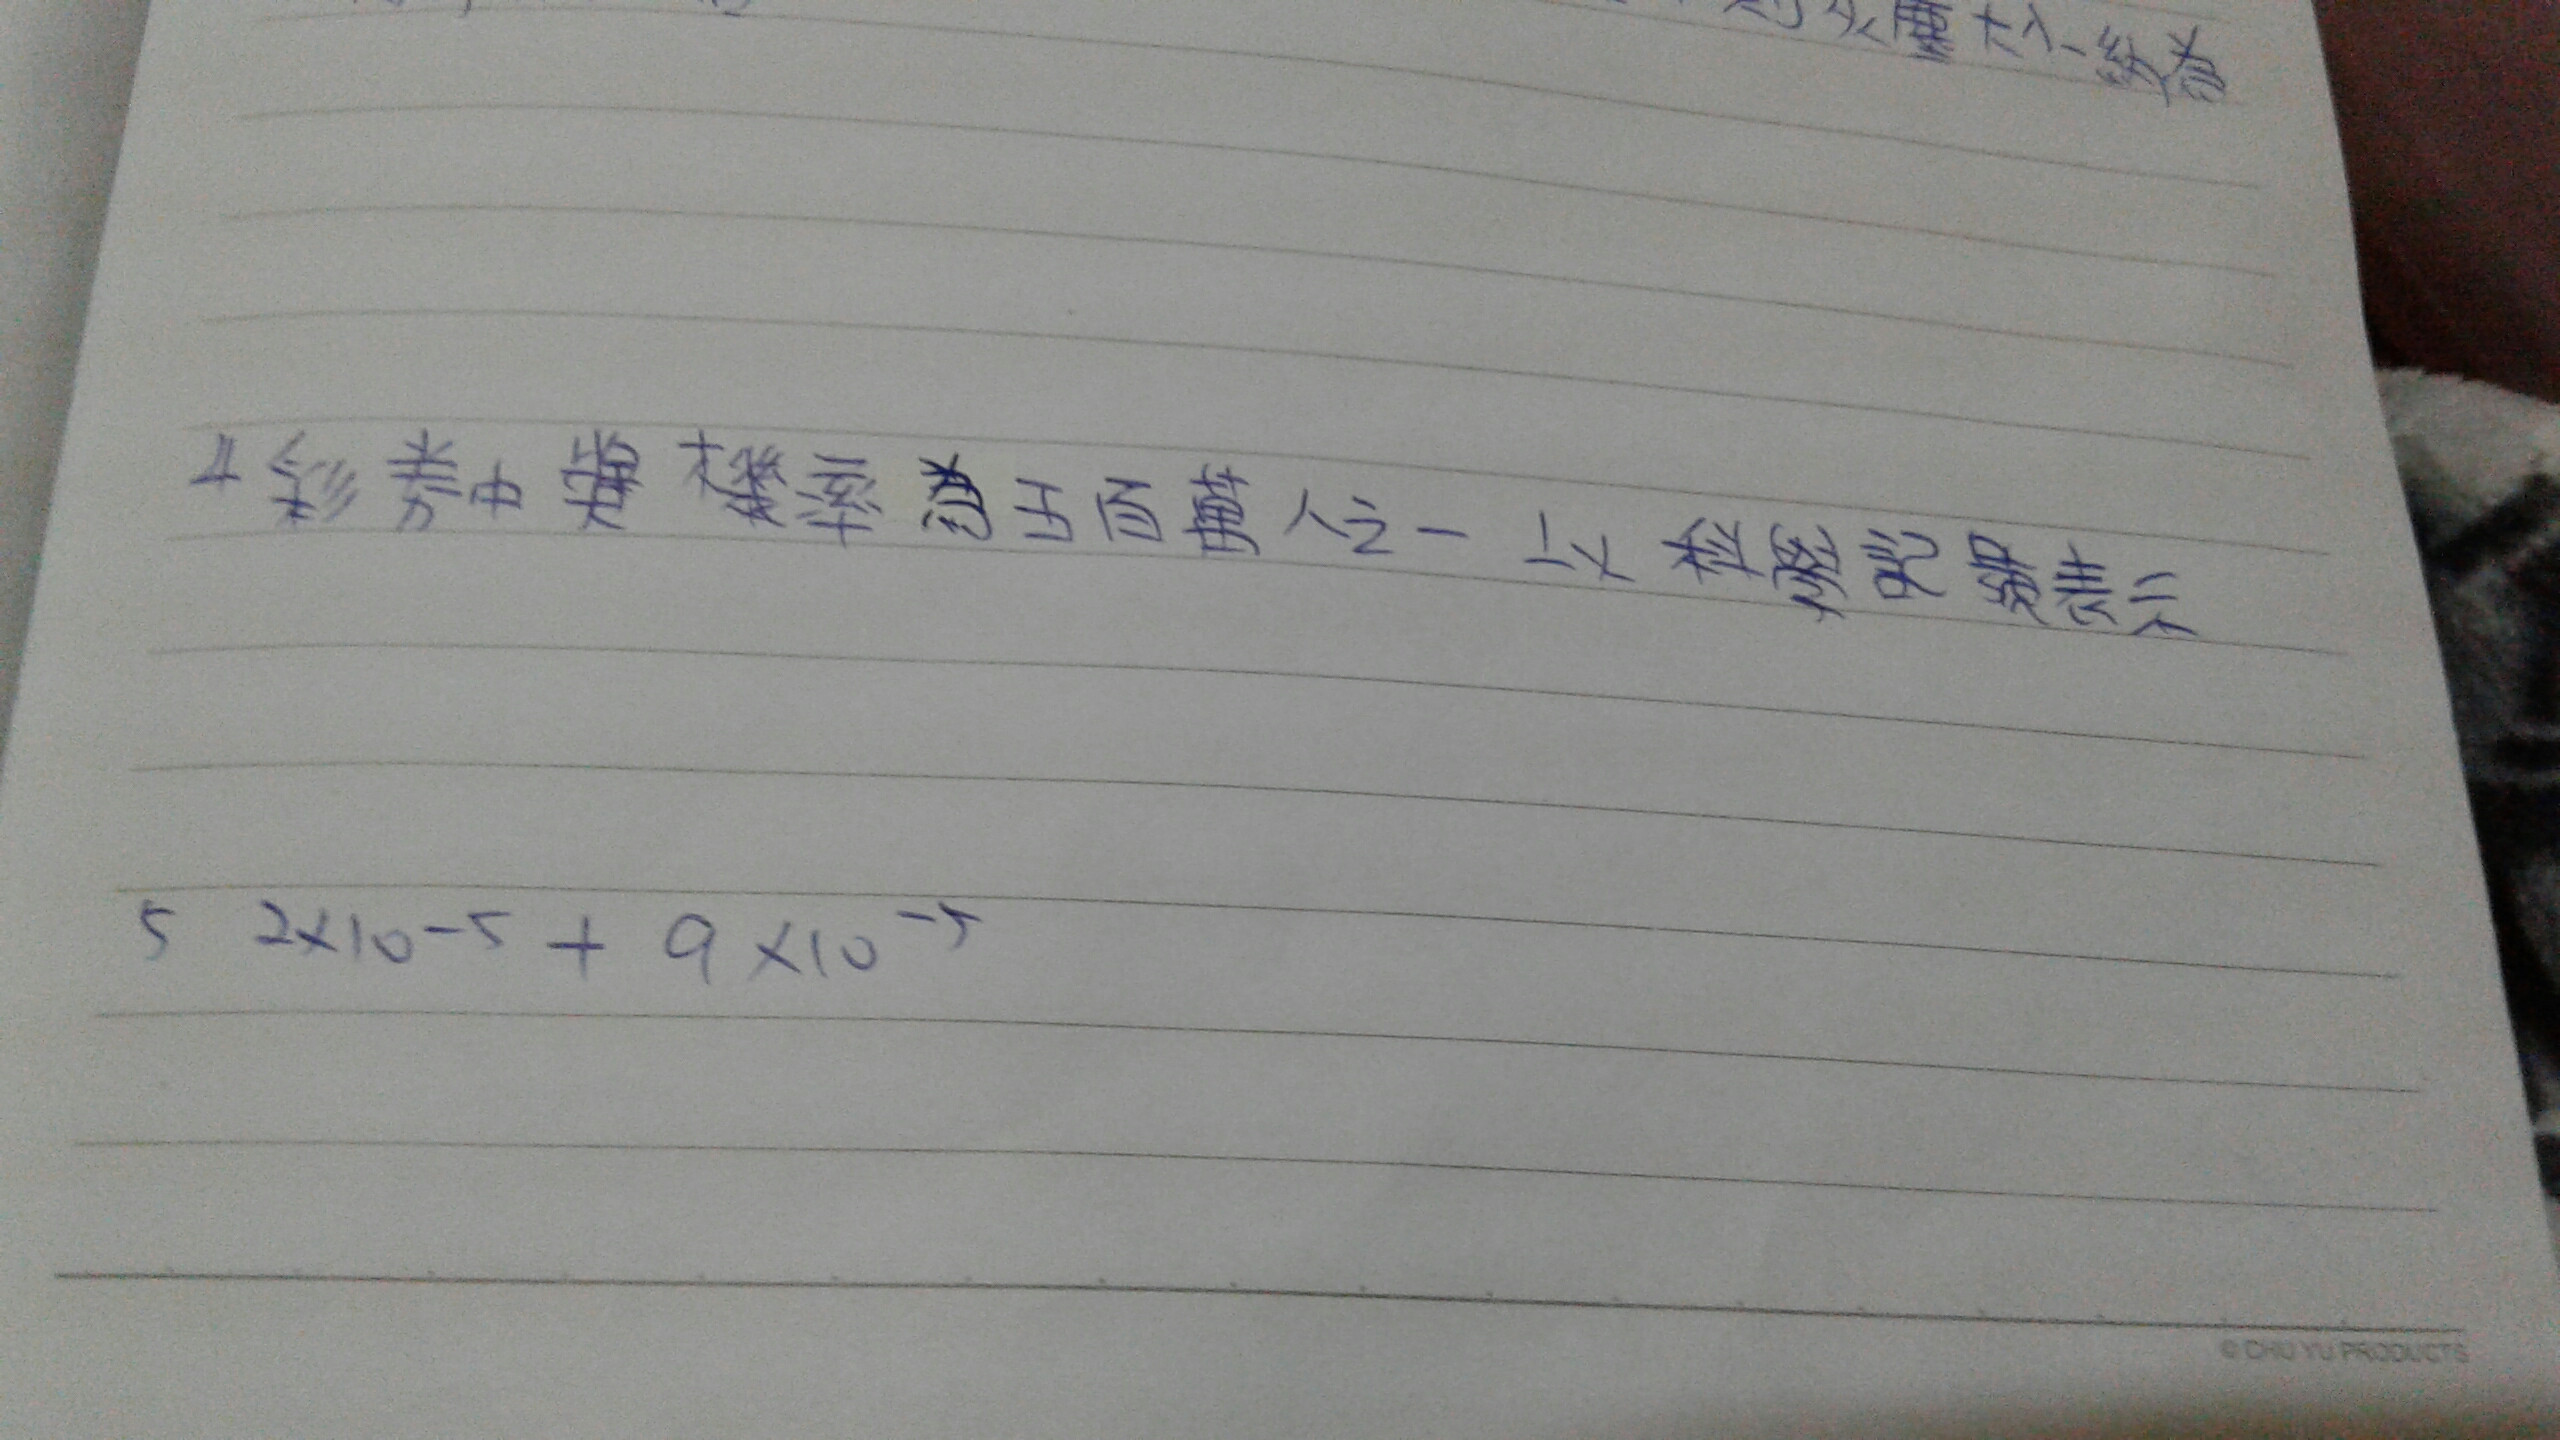 灰塵大小約為
4 彩券中獎機率為五百萬分之一以科學記號表示
5 2×10⁻⁵ + 9×10⁻⁵
© CHU YU PRODUCTS